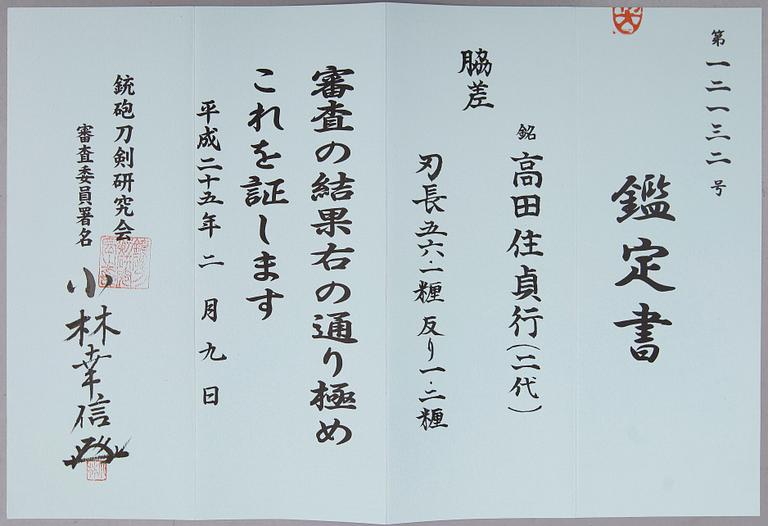 第一二一三二号
鑑定書
脇差
銘 高田住貞行(二代)
刃長五六・一糎 反り一・二糎
審査の結果右の通り極め
これを証します
平成二十五年二月九日
銃砲刀剣研究会
審査委員署名
小林幸信